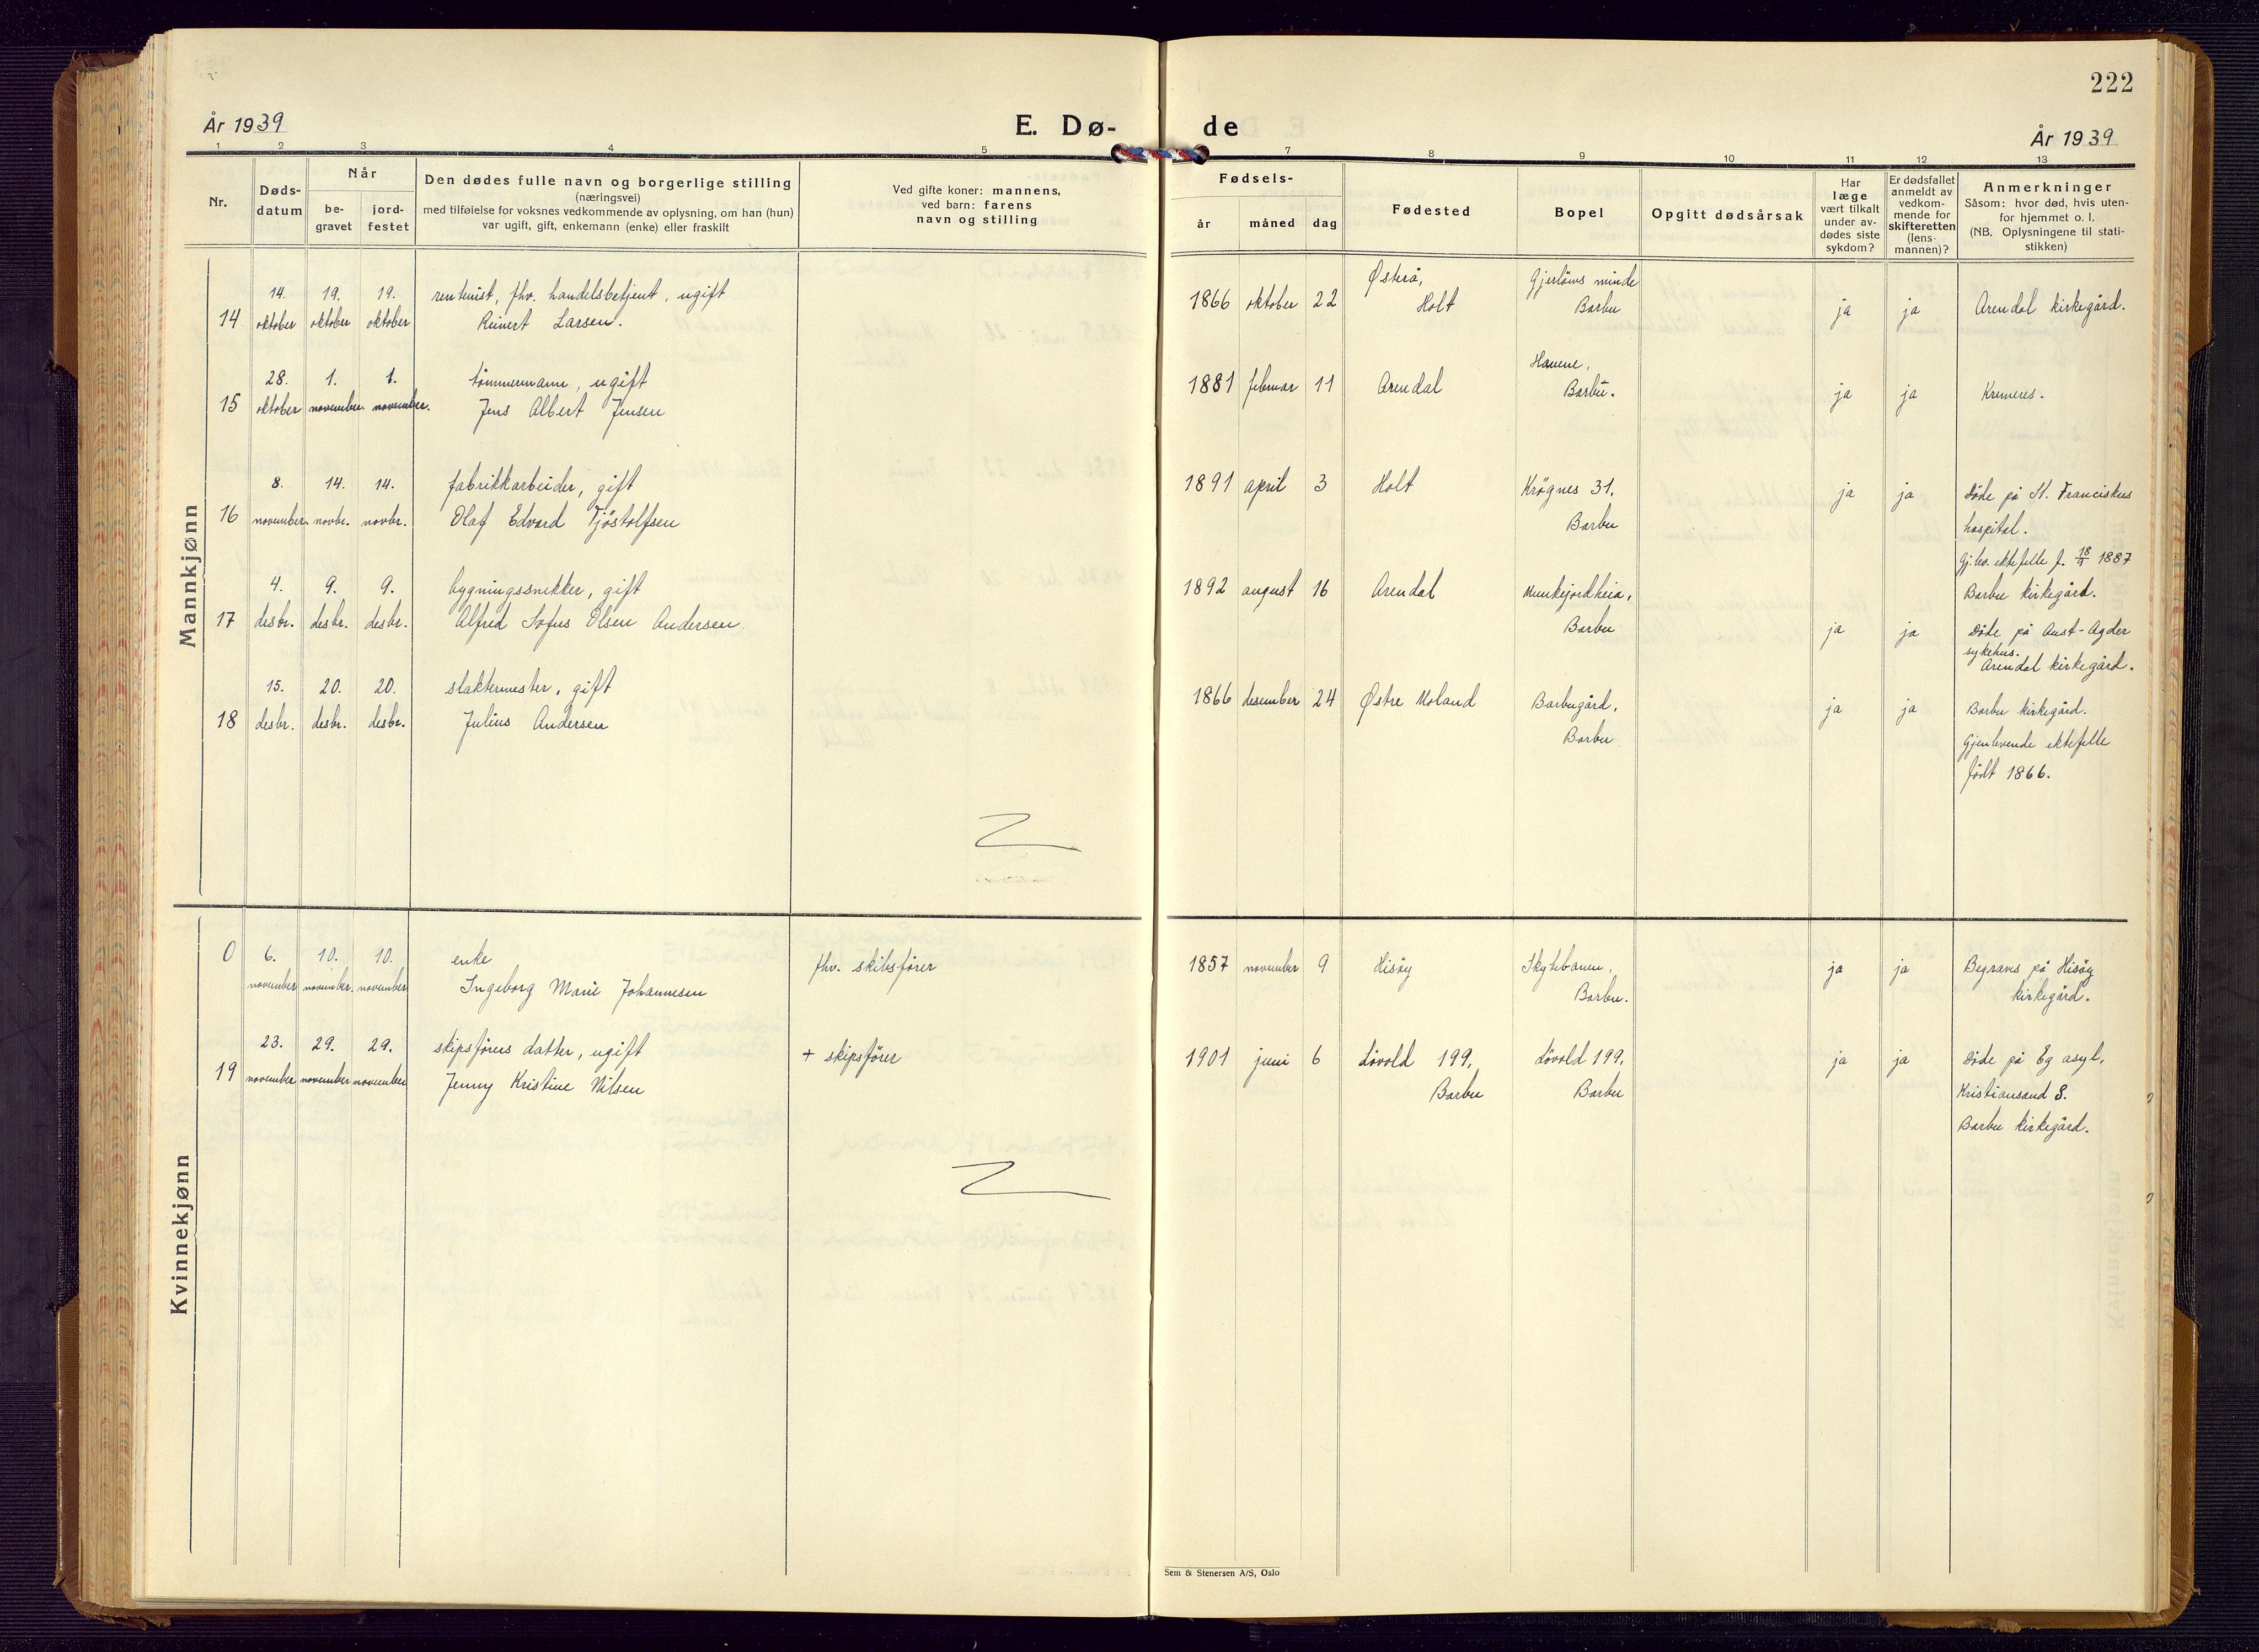 222
År 1939
E. Dø-
de
År 1939
1 2 3 4 5 7 8 9 10 11 12 13
Nr.
Døds-
datum
Når
be-
gravet
jord-
festet
Den dødes fulle navn og borgerlige stilling
(næringsvei)
med tilføielse for voksnes vedkommende av oplysning, om han (hun)
var ugift, gift, enkemann (enke) eller fraskilt
Ved gifte koner: mannens,
ved barn: farens
navn og stilling
Fødsels-
år måned dag
Fødested
Bopel
Opgitt dødsårsak
Har
læge
vært tilkalt
under av-
dødes siste
sykdom?
Er dødsfallet
anmeldt av
vedkom-
mende for
skifteretten
(lens-
mannen)?
Anmerkninger
Såsom: hvor død, hvis uten-
for hjemmet o. l.
(NB. Oplysningene til stati-
stikken)
Mannkjønn
14. 19. 19. rentenist, fhv. handelsbetjent, ugift
14 oktober oktober oktober Reinert Larsen.
Østerå, Gjerløws minde
1866 oktober 22 Holt Barbu ja ja Arendal kirkegård.
28. 1. 1. tømmermann, ugift
15 oktober november november. Jens Albert Jensen
1881 februar 11 Arendal
Barbu. ja ja Kremeres.
8. 14. 14. fabrikkarbeider, gift
16 november. novbr. novbr. Olaf Edvard Tjöstolfsen
1891 april 3 Holt Krøgnes 31,
Barbu ja ja Döde på St. Franciskus
hospital.
Gj.lev. ektefelle f. 1887
Barbu kirkegård.
4. 9. 9. bygningssnekker, gift
17 desbr. desbr. desbr. Alfred Sofus Olsen Andersen
1892 august 16 Arendal Munkejordheia,
Barbu ja ja Döde på Aust-Agder
sykehus.
Arendal kirkegård.
15. 20. 20. slaktermester, gift
18 desbr. desbr. desbr. Julius Andersen
1866 desember 24 Østre Moland Barbugård,
Barbu ja ja Barbu kirkegård.
Gjenlevende ektefelle
födt 1866.
Kvinnekjønn
0 6. 10. 10. enke fhv. skibsfører
november november. november Ingeborg Marie Johannesen
1857 november 9 Hisöy Skytebanen,
Barbu. ja ja Begraves på Hisöy
kirkegård.
23. 29. 29. skipsförers datter, ugift + skipsfører
19 november november november Jenny Kristine Nilsen
1901 juni 6 Lövold 199, Lövold 199,
Barbu Barbu ja ja Döde på Eg asyl,
Kristiansand S.
Barbu kirkegård.
Sem & Stenersen A/S, Oslo